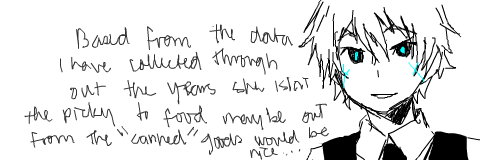 Based from the data
I have collected through
out the years she isn't
the picky to food maybe out
from the "canned" goods would be
nice...